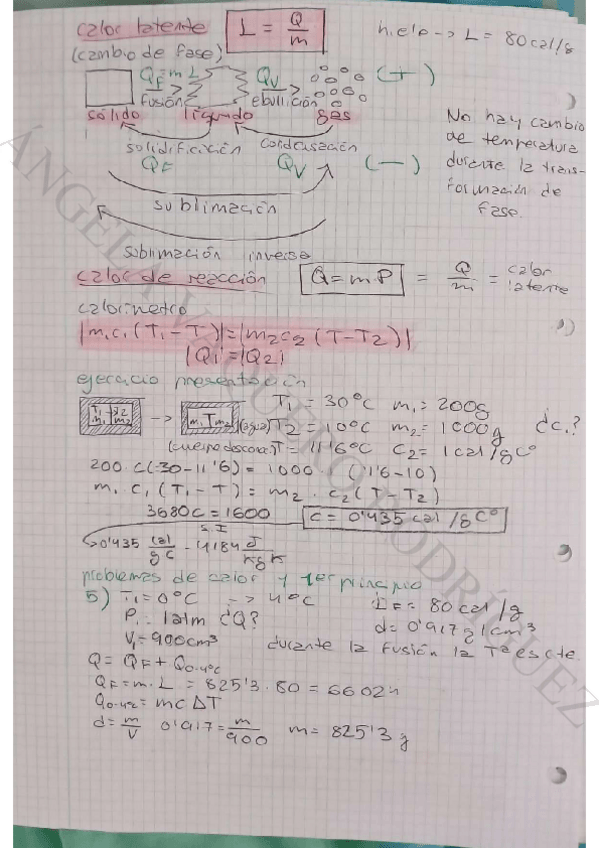 calor latente L = Q/m hielo -> L = 80cal/g
(cambio de fase)
QF=m·L QV (+)
fusión ebullición
sólido líquido gas
solidificación condensación
QF QV (—)
No hay cambio
de temperatura
durante la trans-
formación de
fase.
sublimación
sublimación inversa
calor de reacción Q=m·P = Q/m = calor latente
calorímetro
|m₁c₁(T₁-T)|=|m₂c₂(T-T₂)|
|Q₁|=|Q₂|
ejercicio presentación
T₁ = 30°C m₁= 200g
T₁ T₂ m₁ m₂ -> m₁Tm₂ (agua) T₂ = 10°C m₂= 1000g ¿c₁?
(cuerpo desconoc) T= 11'6°C C₂= 1cal/gC°
200·c(30-11'6)= 1000 (11'6-10)
m₁ c₁(T₁-T)= m₂·c₂(T-T₂)
3680c=1600 c= 0'435cal/gC°
S.I
0'435 cal/g C · 4184 J/kg K
problemas de calor y 1er principio
5) T₁=0°C -> 4°C LF= 80cal/g
P= 1atm ¿Q? d= 0'917g/cm³
V₁= 900cm³ durante la fusión la Tª es cte
Q= QF+Q0-4°C
QF=m·L = 825'3·80=66024
Q0-4°C= mcΔT
d= m/V 0'917= m/900 m= 825'3 g
ÁNGELA VAQUERO RODRÍGUEZ